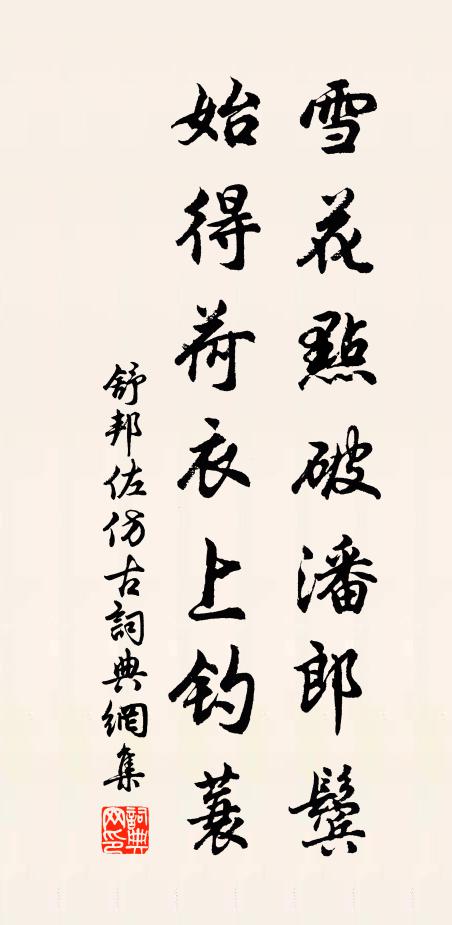 雪花點破潘郎鬢
始得荷衣上釣蓑
舒邦佐仿古詞典網集
詞典網印